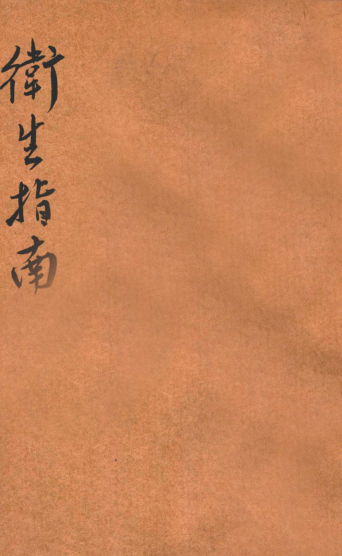 衛生指南